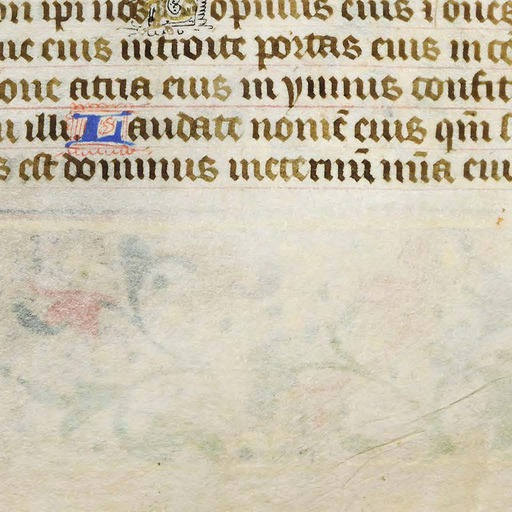 on ipi nos populus eius ⁊ oues
ue eius introite portas eius in cō
one atria eius in ymnis confit
i illi Laudate nomē eius qm̄ s
s est dominus in eternū mīa eiu